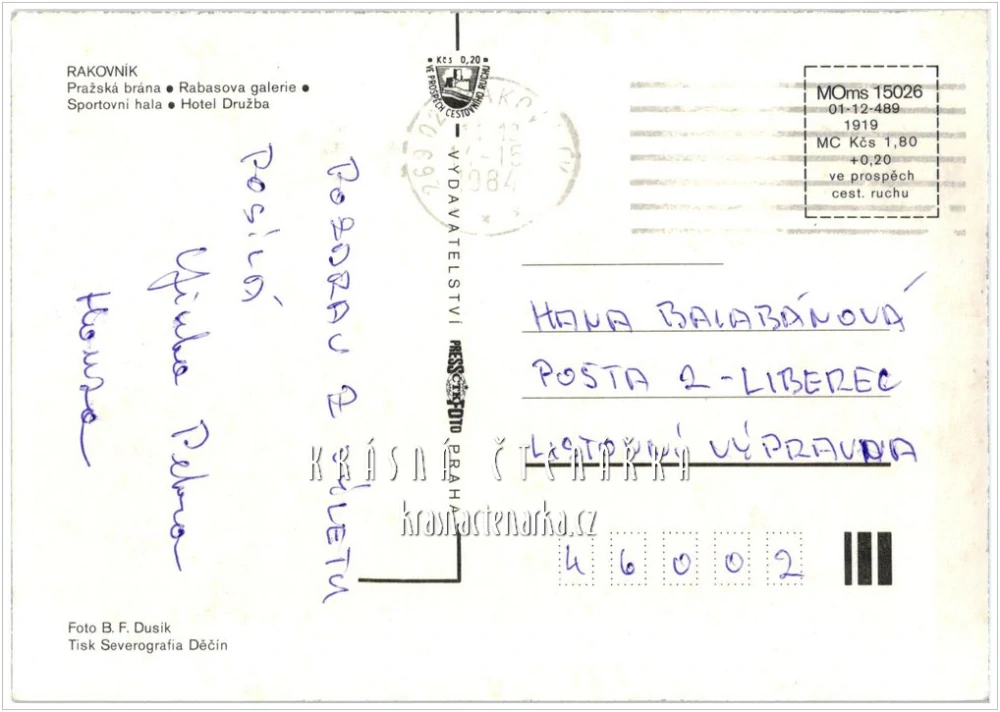 RAKOVNÍK
Pražská brána ● Rabasova galerie ●
Sportovní hala ● Hotel Družba
Kčs 0,20
VE PROSPĚCH CESTOVNÍHO RUCHU
269 02
1984
MOms 15026
01-12-489
1919
MC Kčs 1,80
+0,20
ve prospěch
cest. ruchu
POZDRAV Z VÝLETU
POSÍLÁ
Petra
Honza
VYDAVATELSTVÍ PRESSFOTO PRAHA
ČTK
HANA BALABÁNOVÁ
POŠTA 2-LIBEREC
LISTOVNÍ VÝPRAVNA
KRÁSNÁ ČTENÁŘKA
krasnactenarka.cz
46002
Foto B. F. Dusik
Tisk Severografia Děčín